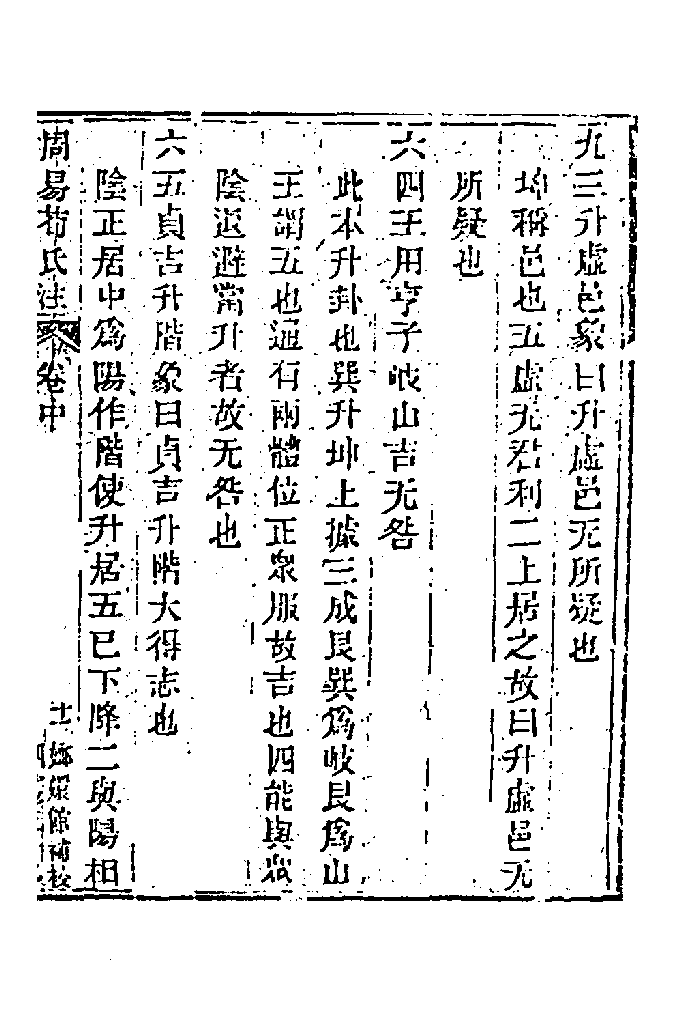 九三升虛邑象曰升虛邑无所疑也
坤稱邑也五虛无君利二上居之故曰升虛邑无
所疑也
六四王用亨于岐山吉无咎
此本升卦也巽升坤上據三成艮巽爲岐艮爲山
王謂五也通有兩體位正衆服故吉也四能與衆
陰退避當升者故无咎也
六五貞吉升階象曰貞吉升階大得志也
陰正居中爲陽作階使升居五已下降二與陽相
周易荀氏注 卷中
十一 嫏嬛館補校